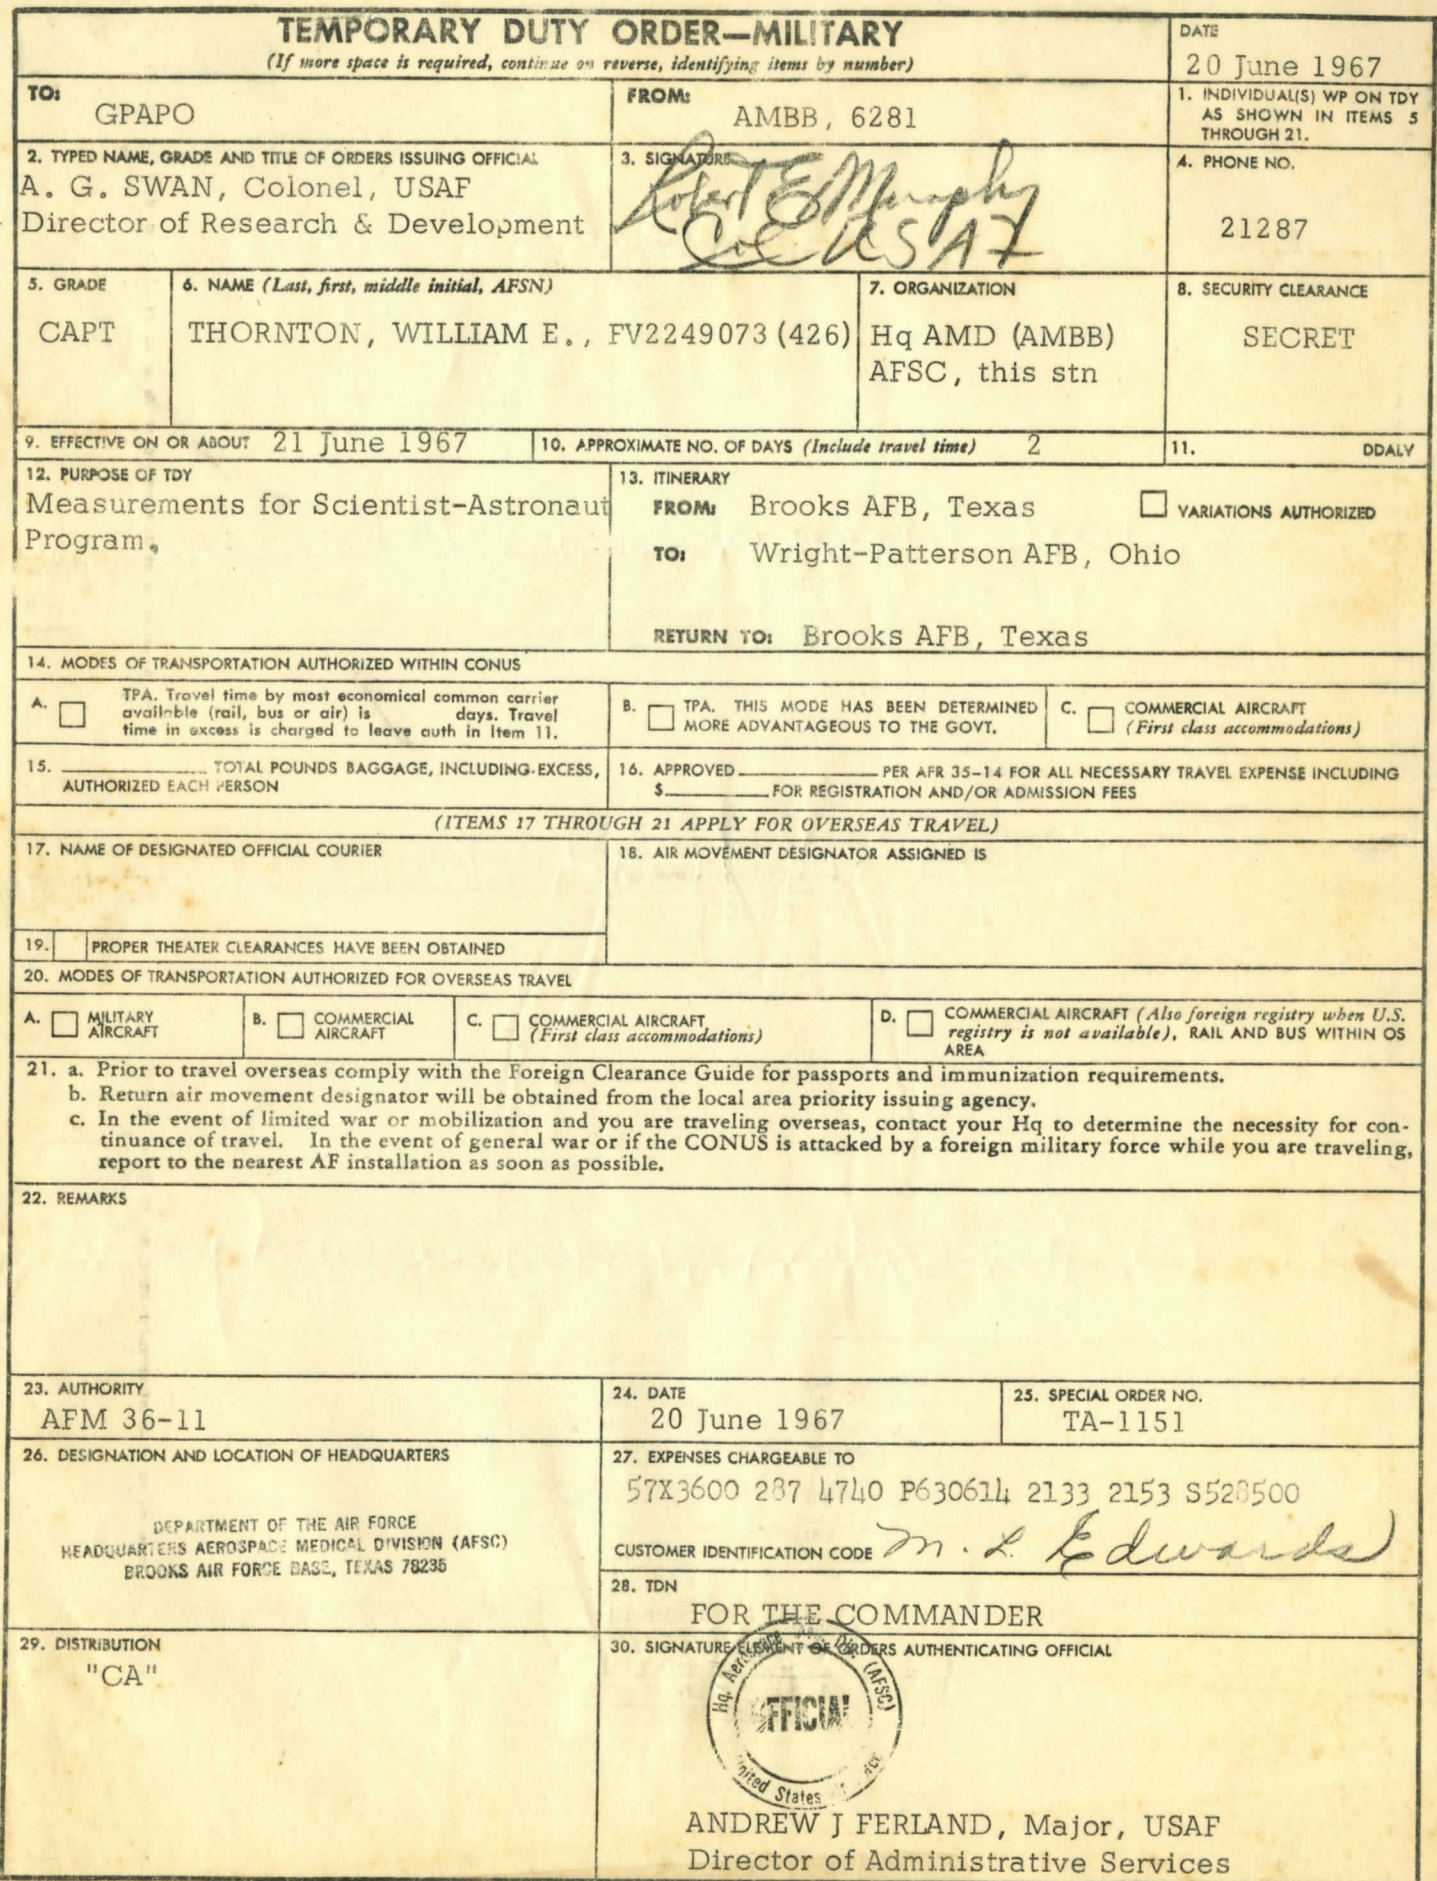 TEMPORARY DUTY ORDER—MILITARY
(If more space is required, continue on reverse, identifying items by number)
DATE
20 June 1967
TO:
GPAPO
FROM:
AMBB, 6281
1. INDIVIDUAL(S) WP ON TDY
AS SHOWN IN ITEMS 5
THROUGH 21.
2. TYPED NAME, GRADE AND TITLE OF ORDERS ISSUING OFFICIAL
A. G. SWAN, Colonel, USAF
Director of Research & Development
3. SIGNATURE
Robert E Murphy
Col USAF
4. PHONE NO.
21287
5. GRADE
CAPT
6. NAME (Last, first, middle initial, AFSN)
THORNTON, WILLIAM E., FV2249073 (426)
7. ORGANIZATION
Hq AMD (AMBB)
AFSC, this stn
8. SECURITY CLEARANCE
SECRET
9. EFFECTIVE ON OR ABOUT 21 June 1967
10. APPROXIMATE NO. OF DAYS (Include travel time) 2
11. DDALV
12. PURPOSE OF TDY
Measurements for Scientist-Astronaut
Program.
13. ITINERARY
FROM: Brooks AFB, Texas
VARIATIONS AUTHORIZED
TO: Wright-Patterson AFB, Ohio
RETURN TO: Brooks AFB, Texas
14. MODES OF TRANSPORTATION AUTHORIZED WITHIN CONUS
A. TPA. Travel time by most economical common carrier
available (rail, bus or air) is ______ days. Travel
time in excess is charged to leave auth in Item 11.
B. TPA. THIS MODE HAS BEEN DETERMINED
MORE ADVANTAGEOUS TO THE GOVT.
C. COMMERCIAL AIRCRAFT
(First class accommodations)
15. ____________ TOTAL POUNDS BAGGAGE, INCLUDING EXCESS,
AUTHORIZED EACH PERSON
16. APPROVED ____________ PER AFR 35-14 FOR ALL NECESSARY TRAVEL EXPENSE INCLUDING
$__________ FOR REGISTRATION AND/OR ADMISSION FEES
(ITEMS 17 THROUGH 21 APPLY FOR OVERSEAS TRAVEL)
17. NAME OF DESIGNATED OFFICIAL COURIER
18. AIR MOVEMENT DESIGNATOR ASSIGNED IS
19. PROPER THEATER CLEARANCES HAVE BEEN OBTAINED
20. MODES OF TRANSPORTATION AUTHORIZED FOR OVERSEAS TRAVEL
A. MILITARY
AIRCRAFT
B. COMMERCIAL
AIRCRAFT
C. COMMERCIAL AIRCRAFT
(First class accommodations)
D. COMMERCIAL AIRCRAFT (Also foreign registry when U.S.
registry is not available), RAIL AND BUS WITHIN OS
AREA
21. a. Prior to travel overseas comply with the Foreign Clearance Guide for passports and immunization requirements.
b. Return air movement designator will be obtained from the local area priority issuing agency.
c. In the event of limited war or mobilization and you are traveling overseas, contact your Hq to determine the necessity for con-
tinuance of travel. In the event of general war or if the CONUS is attacked by a foreign military force while you are traveling,
report to the nearest AF installation as soon as possible.
22. REMARKS
23. AUTHORITY
AFM 36-11
24. DATE
20 June 1967
25. SPECIAL ORDER NO.
TA-1151
26. DESIGNATION AND LOCATION OF HEADQUARTERS
DEPARTMENT OF THE AIR FORCE
HEADQUARTERS AEROSPACE MEDICAL DIVISION (AFSC)
BROOKS AIR FORCE BASE, TEXAS 78235
27. EXPENSES CHARGEABLE TO
57X3600 287 4740 P630614 2133 2153 S528500
CUSTOMER IDENTIFICATION CODE M. L. Edwards
28. TDN
FOR THE COMMANDER
29. DISTRIBUTION
"CA"
30. SIGNATURE ELEMENT OF ORDERS AUTHENTICATING OFFICIAL
Hq. Aerospace Div. (AFSC)
OFFICIAL
United States
ANDREW J FERLAND, Major, USAF
Director of Administrative Services